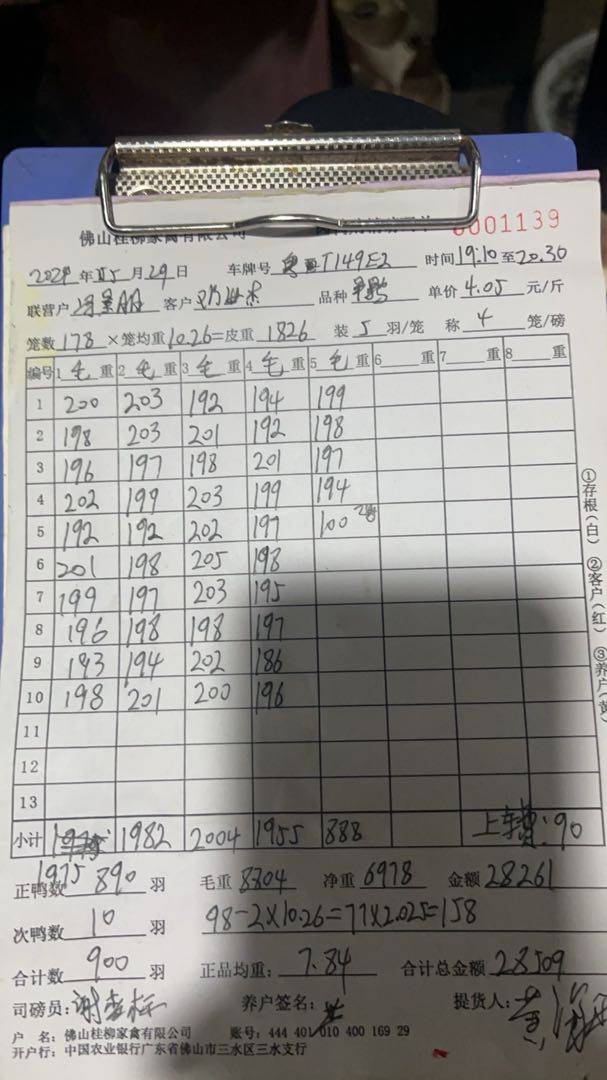 佛山桂柳家禽有限公司 0001139
2024年05月29日 车牌号 粤 T149E2 时间19:10至20.30
联营户 客户 品种 单价4.05元/斤
笼数178×笼均重10.26=皮重1826 装5羽/笼 称4笼/磅
编号 1毛重 2毛重 3毛重 4毛重 5毛重 6 重 7 重 8 重
1 200 203 192 194 199
2 198 203 201 192 198
3 196 197 198 201 197
4 202 199 203 199 194
5 192 192 202 197 100
6 201 198 205 198
7 199 197 203 195
8 196 198 198 197
9 193 194 202 186
10 198 201 200 196
11
12
13
小计 1982 2004 1955 888 上车费:90
1975
正鸭数890羽 毛重8804 净重6978 金额28261
次鸭数10羽 98-2×10.26=77×2.025=158
合计数900羽 正品均重:7.84 合计总金额28509
司磅员: 养户签名: 提货人:
户 名:佛山桂柳家禽有限公司 账号:444 401 010 400 169 29
开户行:中国农业银行广东省佛山市三水区三水支行
①存根(白) ②客户(红) ③养户(黄)